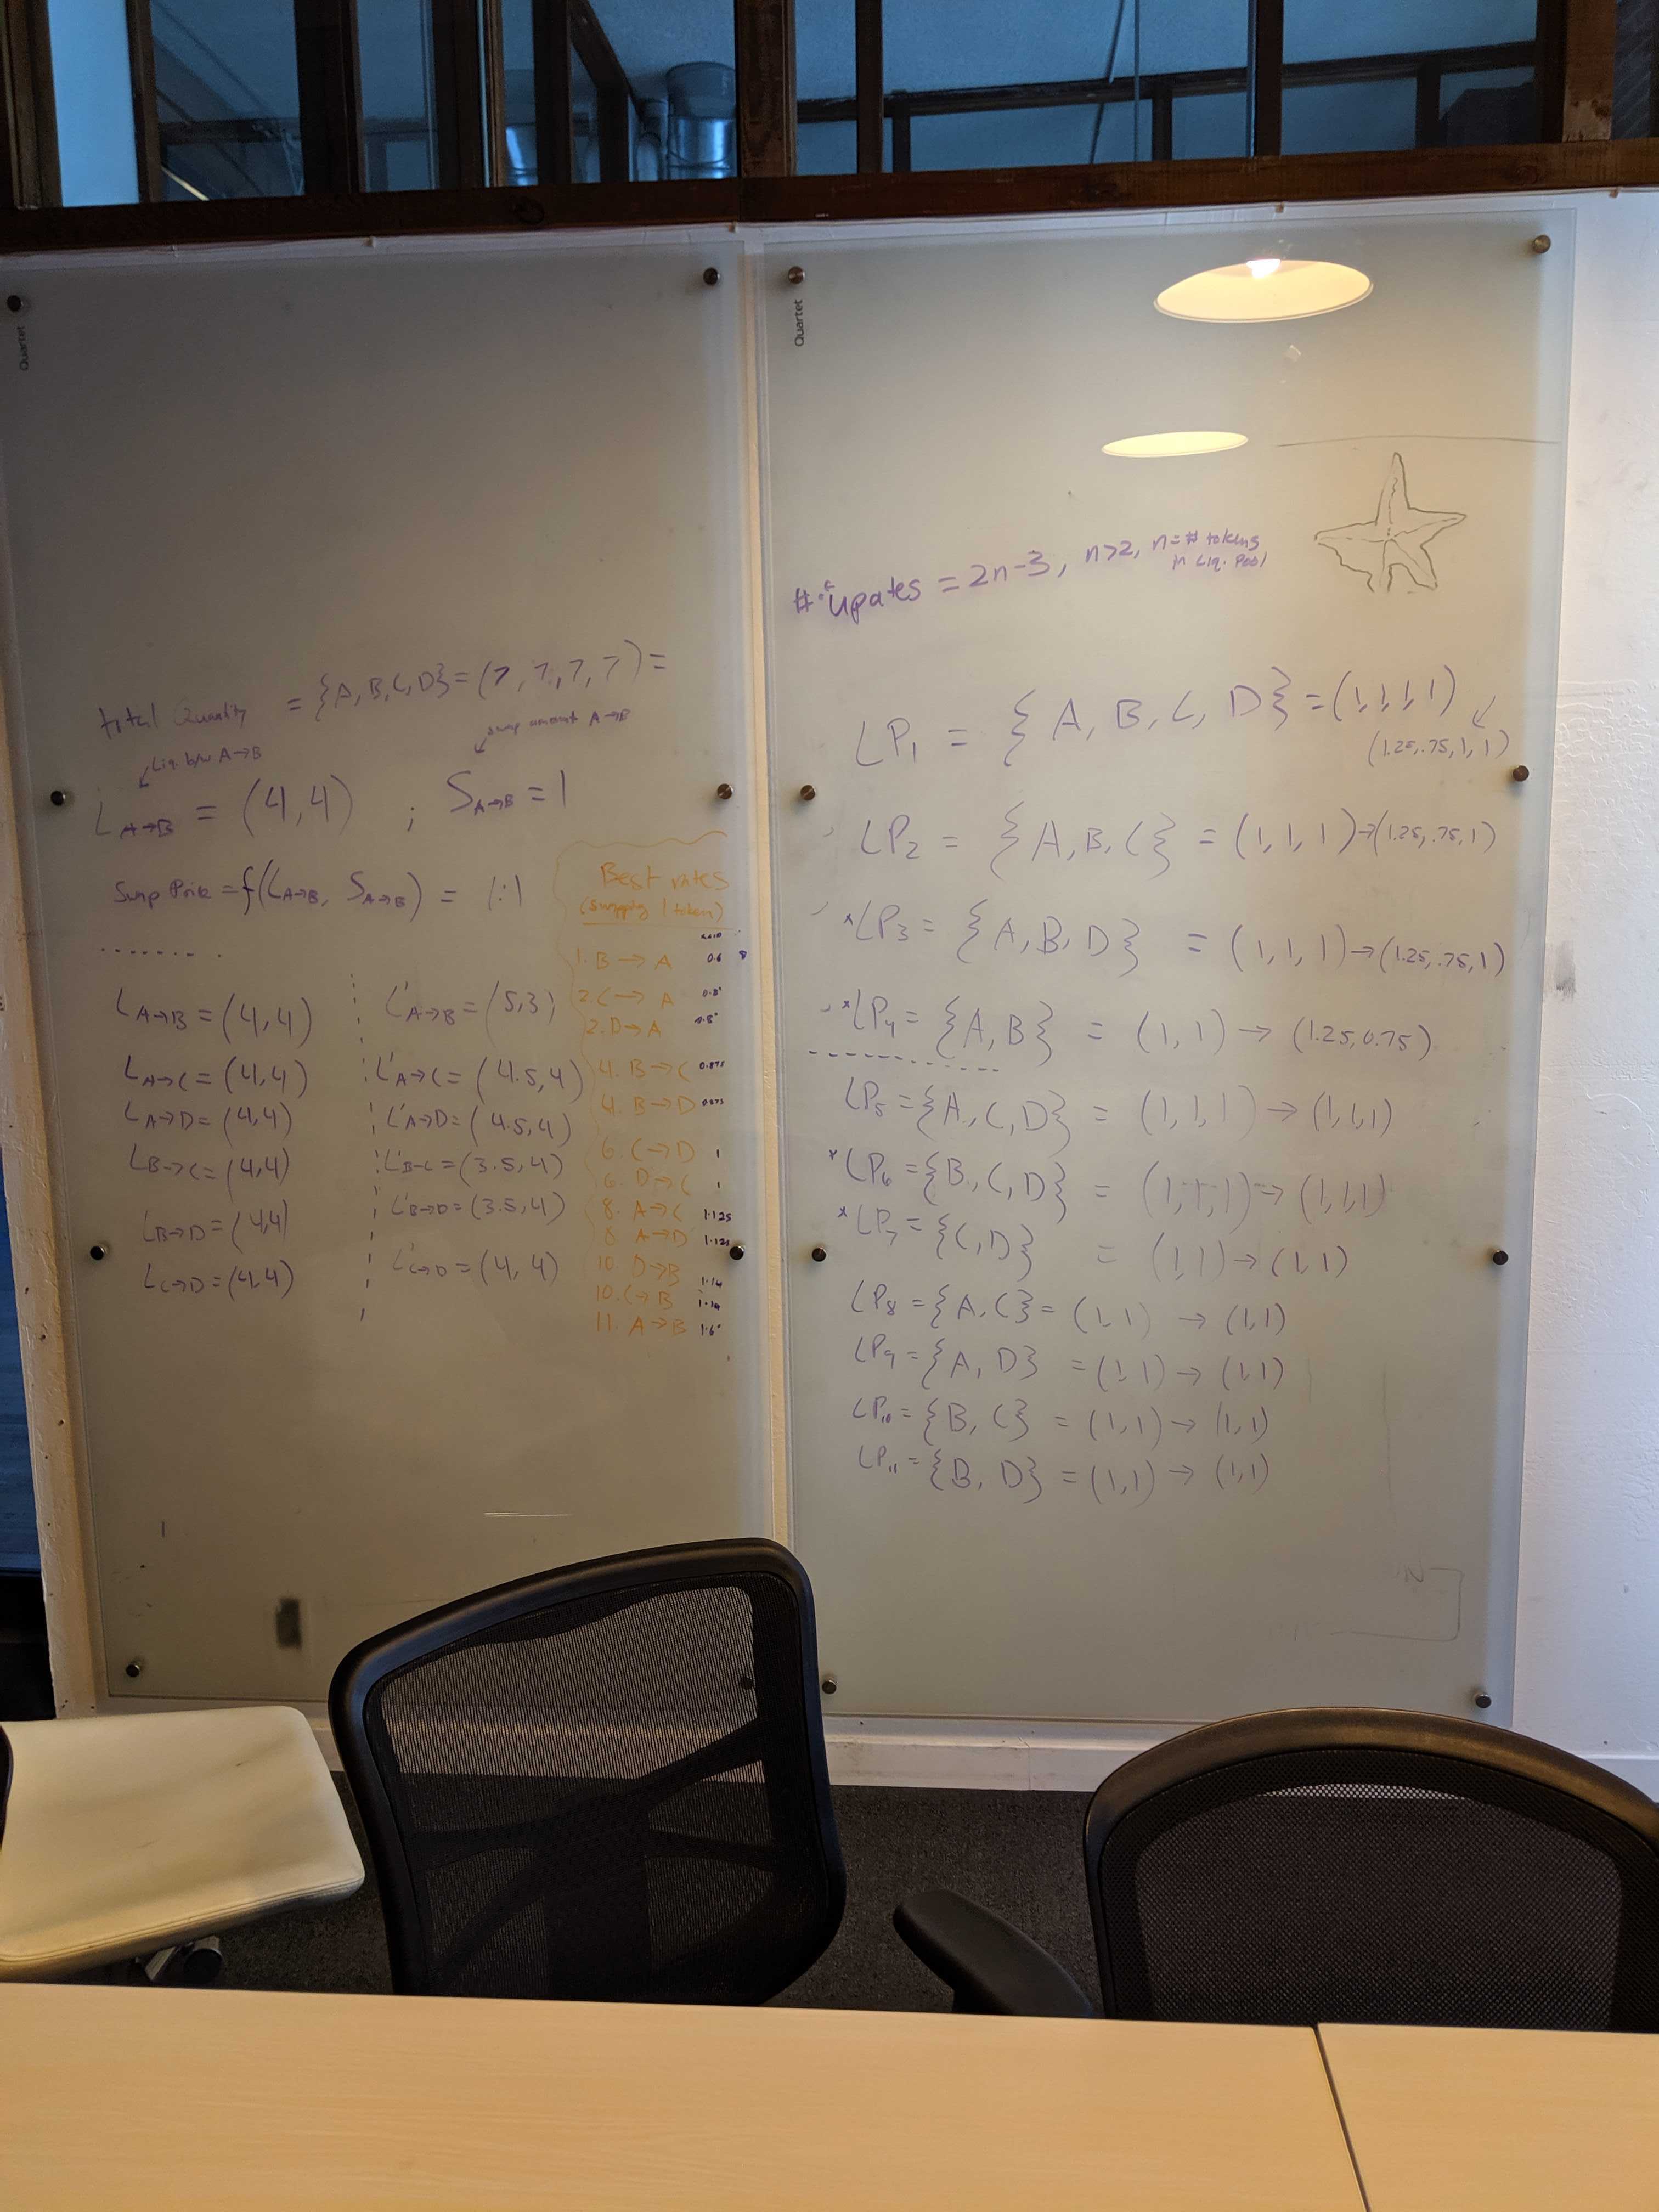 Quartet
total Quantity = {A, B, C, D} = (7, 7, 7, 7) =
Liq. b/w A→B
swap amount A→B
L A→B = (4,4) ; S A→B = 1
Swap Price = f(L A→B, S A→B) = 1:1
L A→B = (4,4)
L A→C = (4,4)
L A→D = (4,4)
L B→C = (4,4)
L B→D = (4,4)
L C→D = (4,4)
L' A→B = (5,3)
L' A→C = (4.5,4)
L' A→D = (4.5,4)
L' B→C = (3.5,4)
L' B→D = (3.5,4)
L' C→D = (4,4)
Best rates
(swapping 1 token)
1. B → A 0.6
2. C → A 0.8
2. D → A 0.8
4. B → C 0.875
4. B → D 0.875
6. C → D 1
6. D → C 1
8. A → C 1.125
8. A → D 1.125
10. D → B 1.14
10. C → B 1.14
11. A → B 1.6
Quartet
# upates = 2n-3, n>2, n = # tokens
in Liq. Pool
LP1 = {A, B, C, D} = (1,1,1,1)
(1.25, .75, 1, 1)
LP2 = {A, B, C} = (1, 1, 1) → (1.25, .75, 1)
*LP3 = {A, B, D} = (1, 1, 1) → (1.25, .75, 1)
*LP4 = {A, B} = (1, 1) → (1.25, 0.75)
LP5 = {A, C, D} = (1, 1, 1) → (1, 1, 1)
*LP6 = {B, C, D} = (1, 1, 1) → (1, 1, 1)
*LP7 = {C, D} = (1, 1) → (1, 1)
LP8 = {A, C} = (1, 1) → (1, 1)
LP9 = {A, D} = (1, 1) → (1, 1)
LP10 = {B, C} = (1, 1) → (1, 1)
LP11 = {B, D} = (1, 1) → (1, 1)